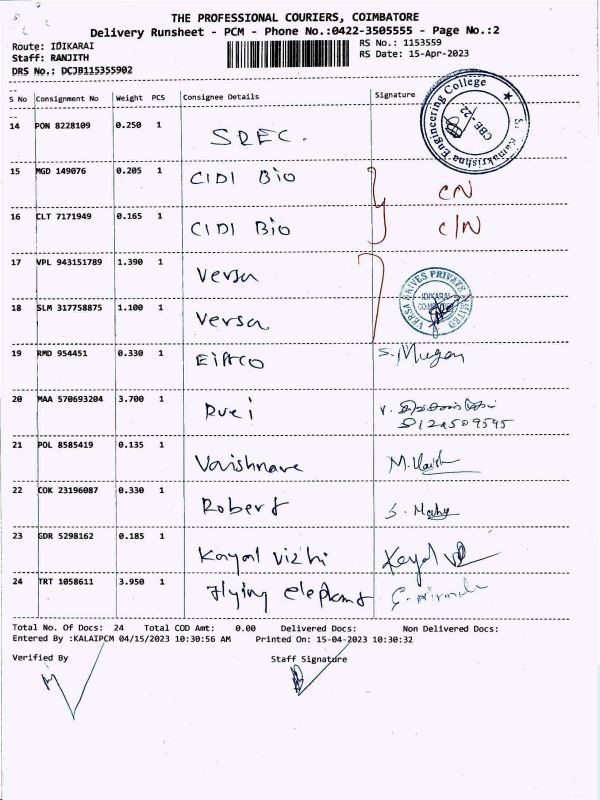 THE PROFESSIONAL COURIERS, COIMBATORE
Delivery Runsheet - PCM - Phone No.:0422-3505555 - Page No.:2
Route: IDIKARAI RS No.: 1153559
Staff: RANJITH RS Date: 15-Apr-2023
DRS No.: DCJB115355902
S No Consignment No Weight PCS Consignee Details Signature
14 PON 8228109 0.250 1 SREC.
Engineering College
CBE-22
15 MGD 149076 0.205 1 CIDI Bio CN
16 CLT 7171949 0.165 1 CIDI Bio C/N
17 VPL 943151789 1.390 1 Versa
VERSA DRIVES PRIVATE LIMITED
IDIKARAI
18 SLM 317758875 1.100 1 Versa
19 RMD 954451 0.330 1 S. Mugan
20 MAA 570693204 3.700 1
21 POL 8585419 0.135 1 Vaishnave
22 COK 23196087 0.330 1 Robert
23 GDR 5298162 0.185 1 Kayal vizhi Kayal
24 TRT 1058611 3.950 1 Flying elephant
Total No. Of Docs: 24 Total COD Amt: 0.00 Delivered Docs: Non Delivered Docs:
Entered By :KALAIPCM 04/15/2023 10:30:56 AM Printed On: 15-04-2023 10:30:32
Verified By Staff Signature